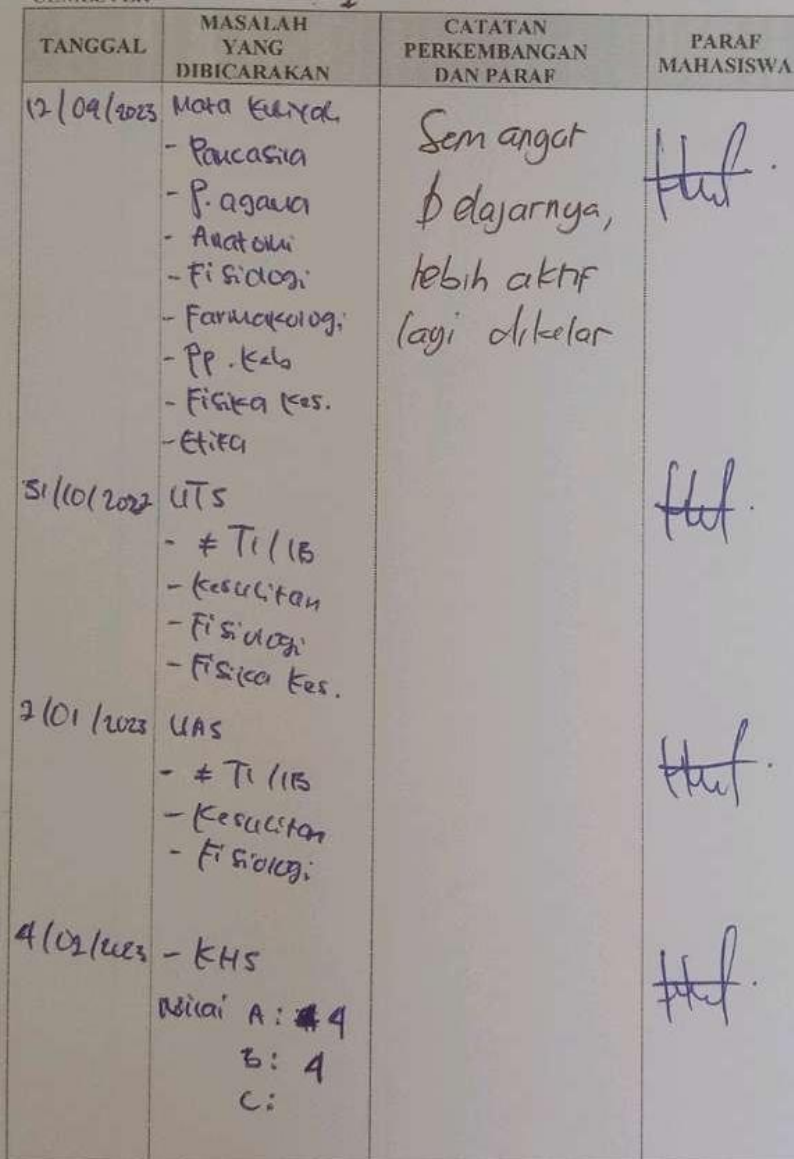 TANGGAL
MASALAH
YANG
DIBICARAKAN
CATATAN
PERKEMBANGAN
DAN PARAF
PARAF
MAHASISWA
12/09/2023 Mata Kuliyah
- Pancasila
- P. agama
- Anatomi
- Fisiologi
- Farmakologi
- Pp. Keb
- Fisika Kes.
- Etika
Semangat
belajarnya,
lebih aktif
lagi dikelar
31/10/2022 UTS
- ≠ TI/IB
- Kesulitan
- Fisiologi
- Fisika Kes.
2/01/2023 UAS
- ≠ TI/IB
- Kesulitan
- Fisiologi
4/02/2023 - KHS
Nilai A: 4
B: 4
C: